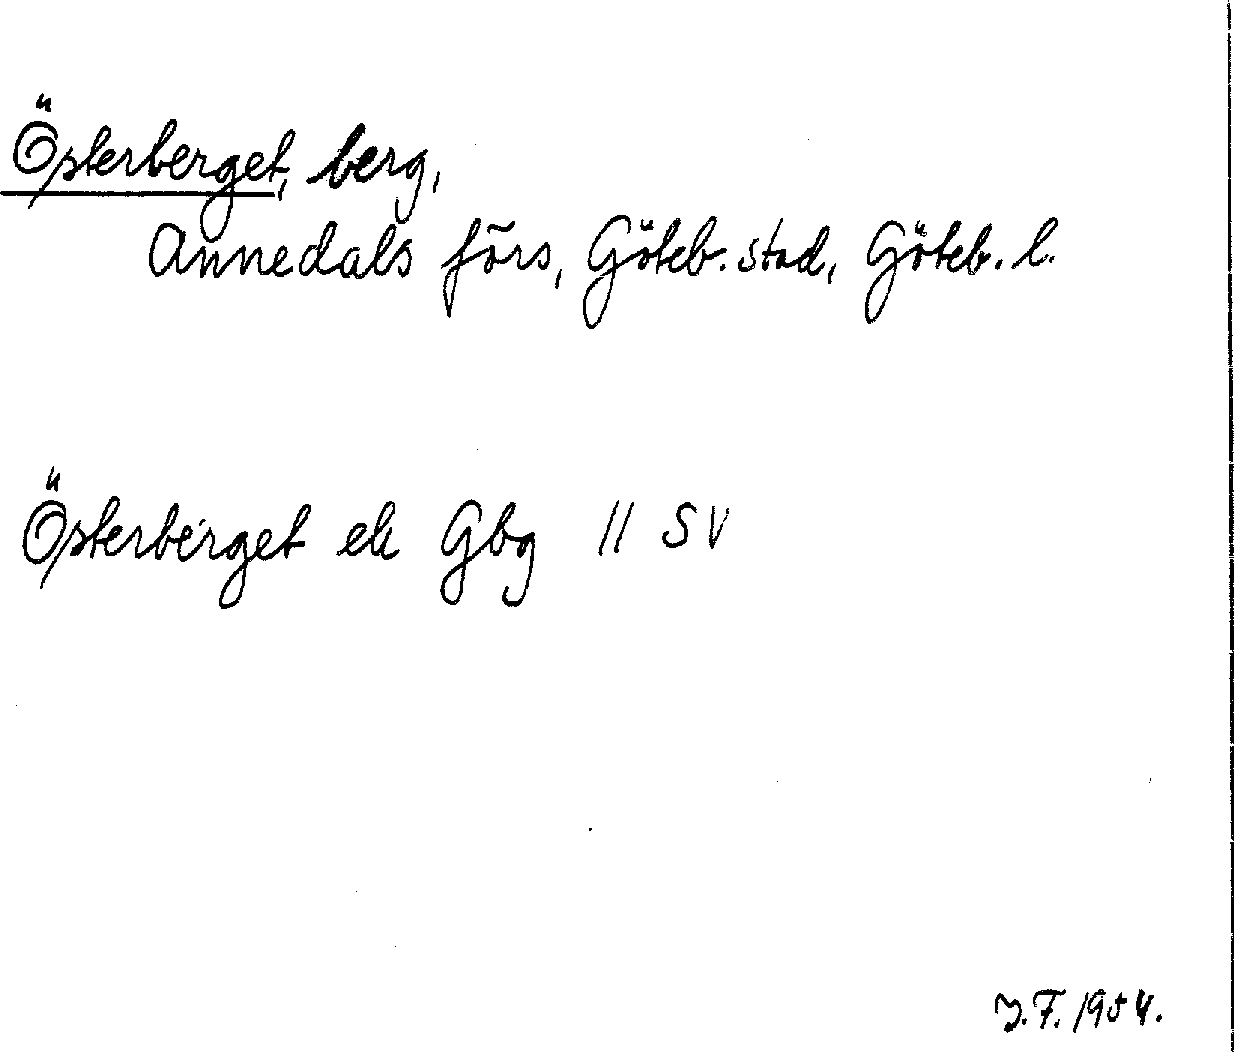 Österberget, berg,
Annedals förs, Göteb. stad, Göteb. l.
Österberget ek Gbg 11 SV
J.F. 1954.